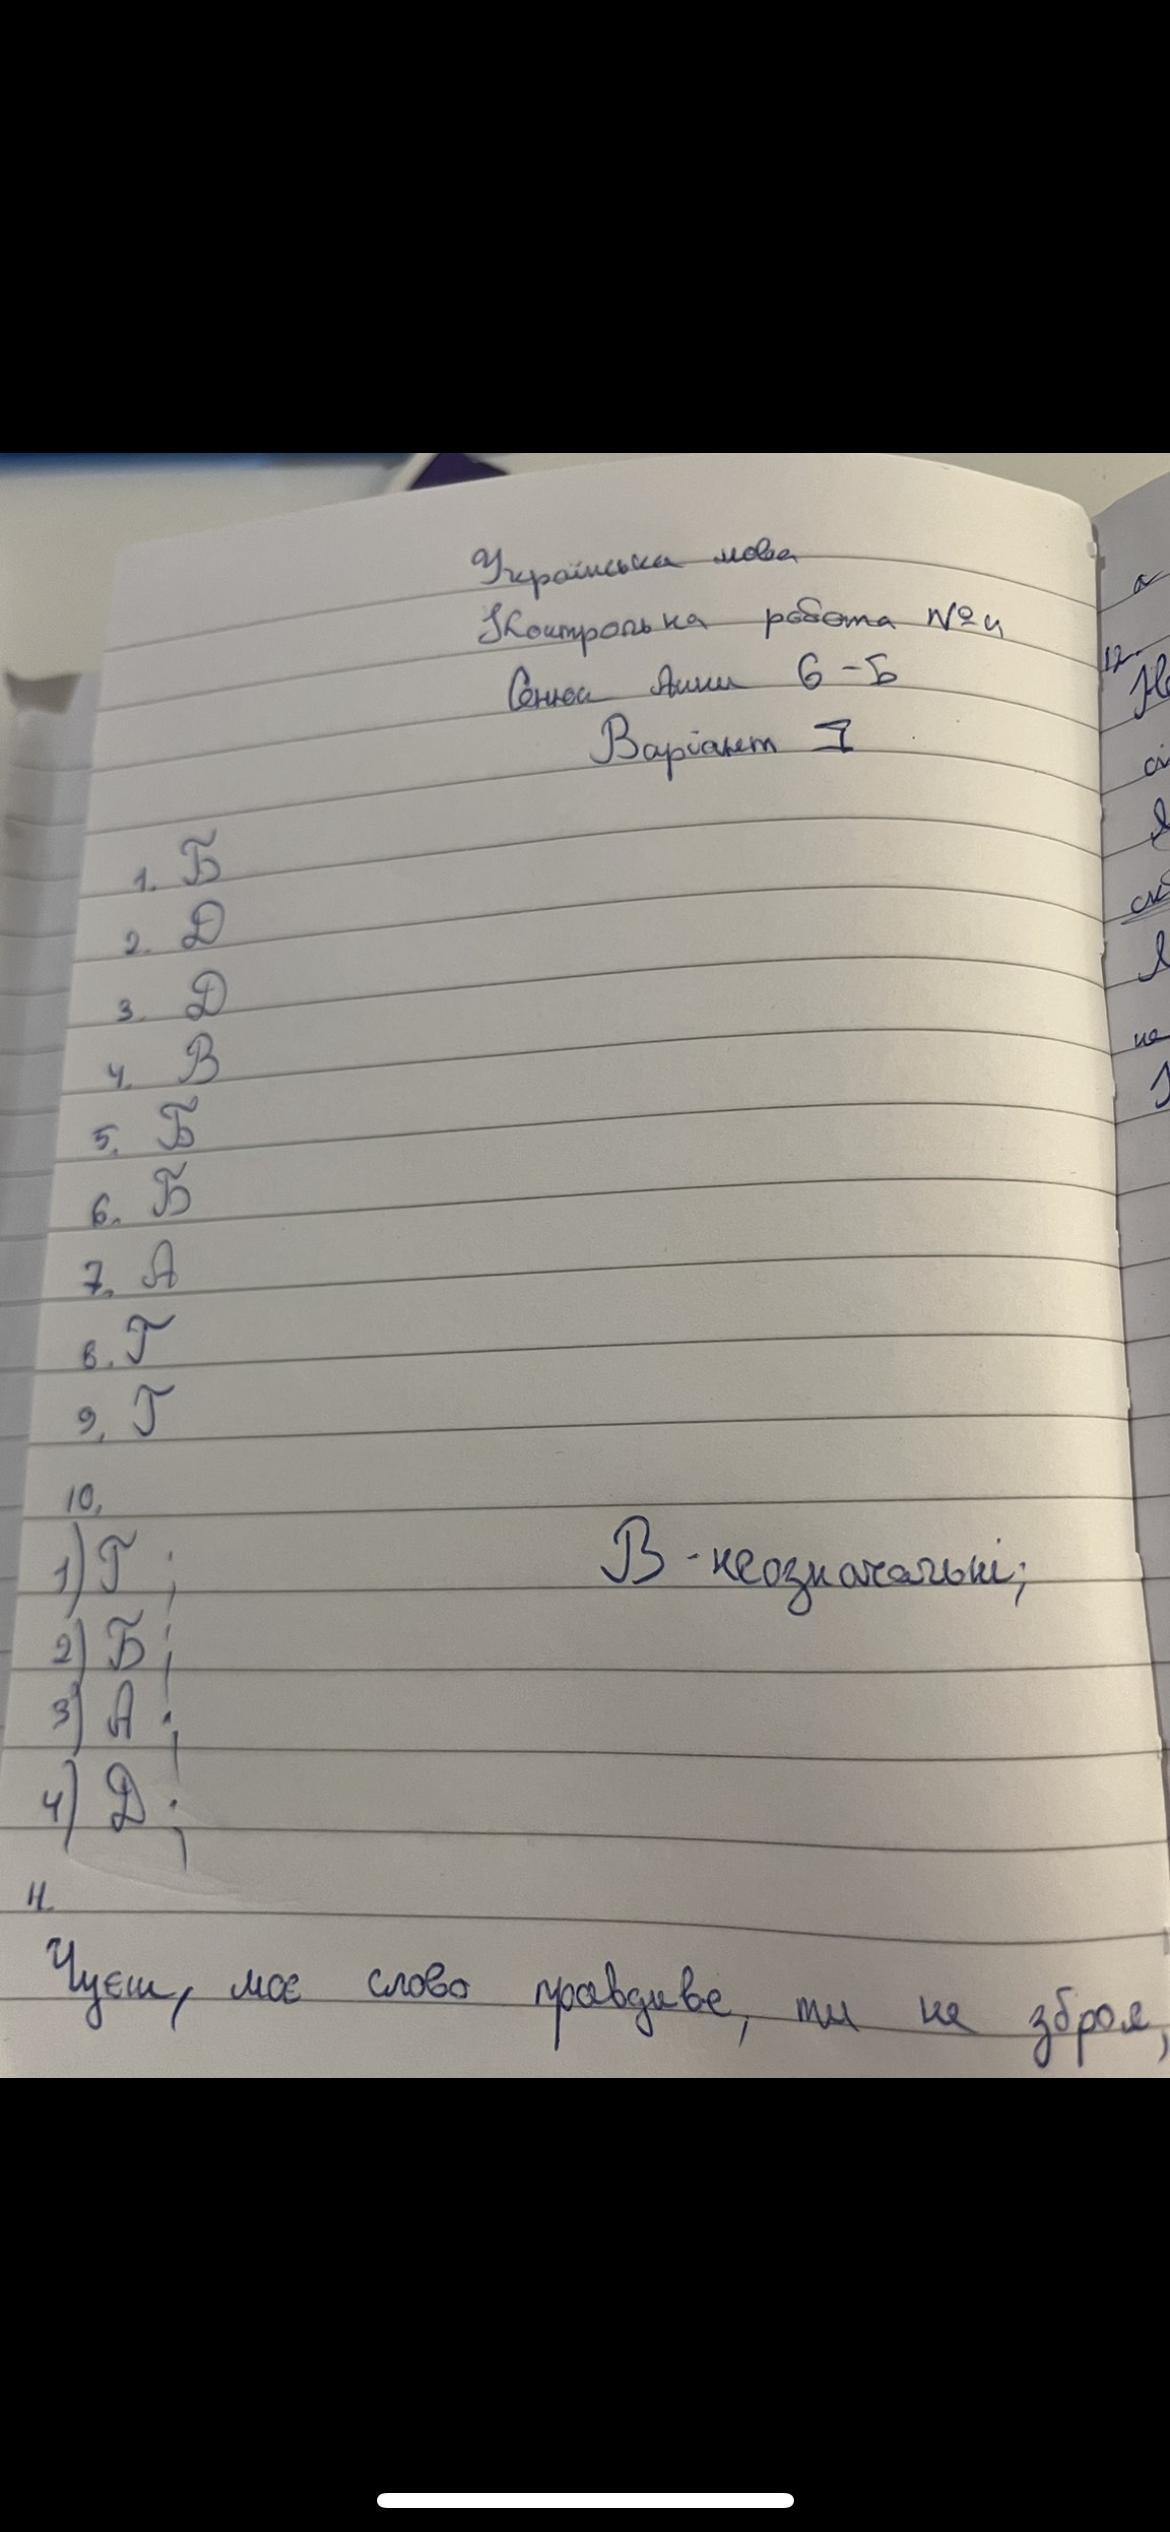 Українська мова
Контрольна робота №4
Анни 6-Б
Варіант I
1. Б
2. Д
3. Д
4. В
5. Б
6. Б
7. А
8. Г
9. Г
10.
1) Г; В - неозначальні;
2) Б;
3) А;
4) Д;
11.
Чуєш, моє слово правдиве, ти не зброя,
12.